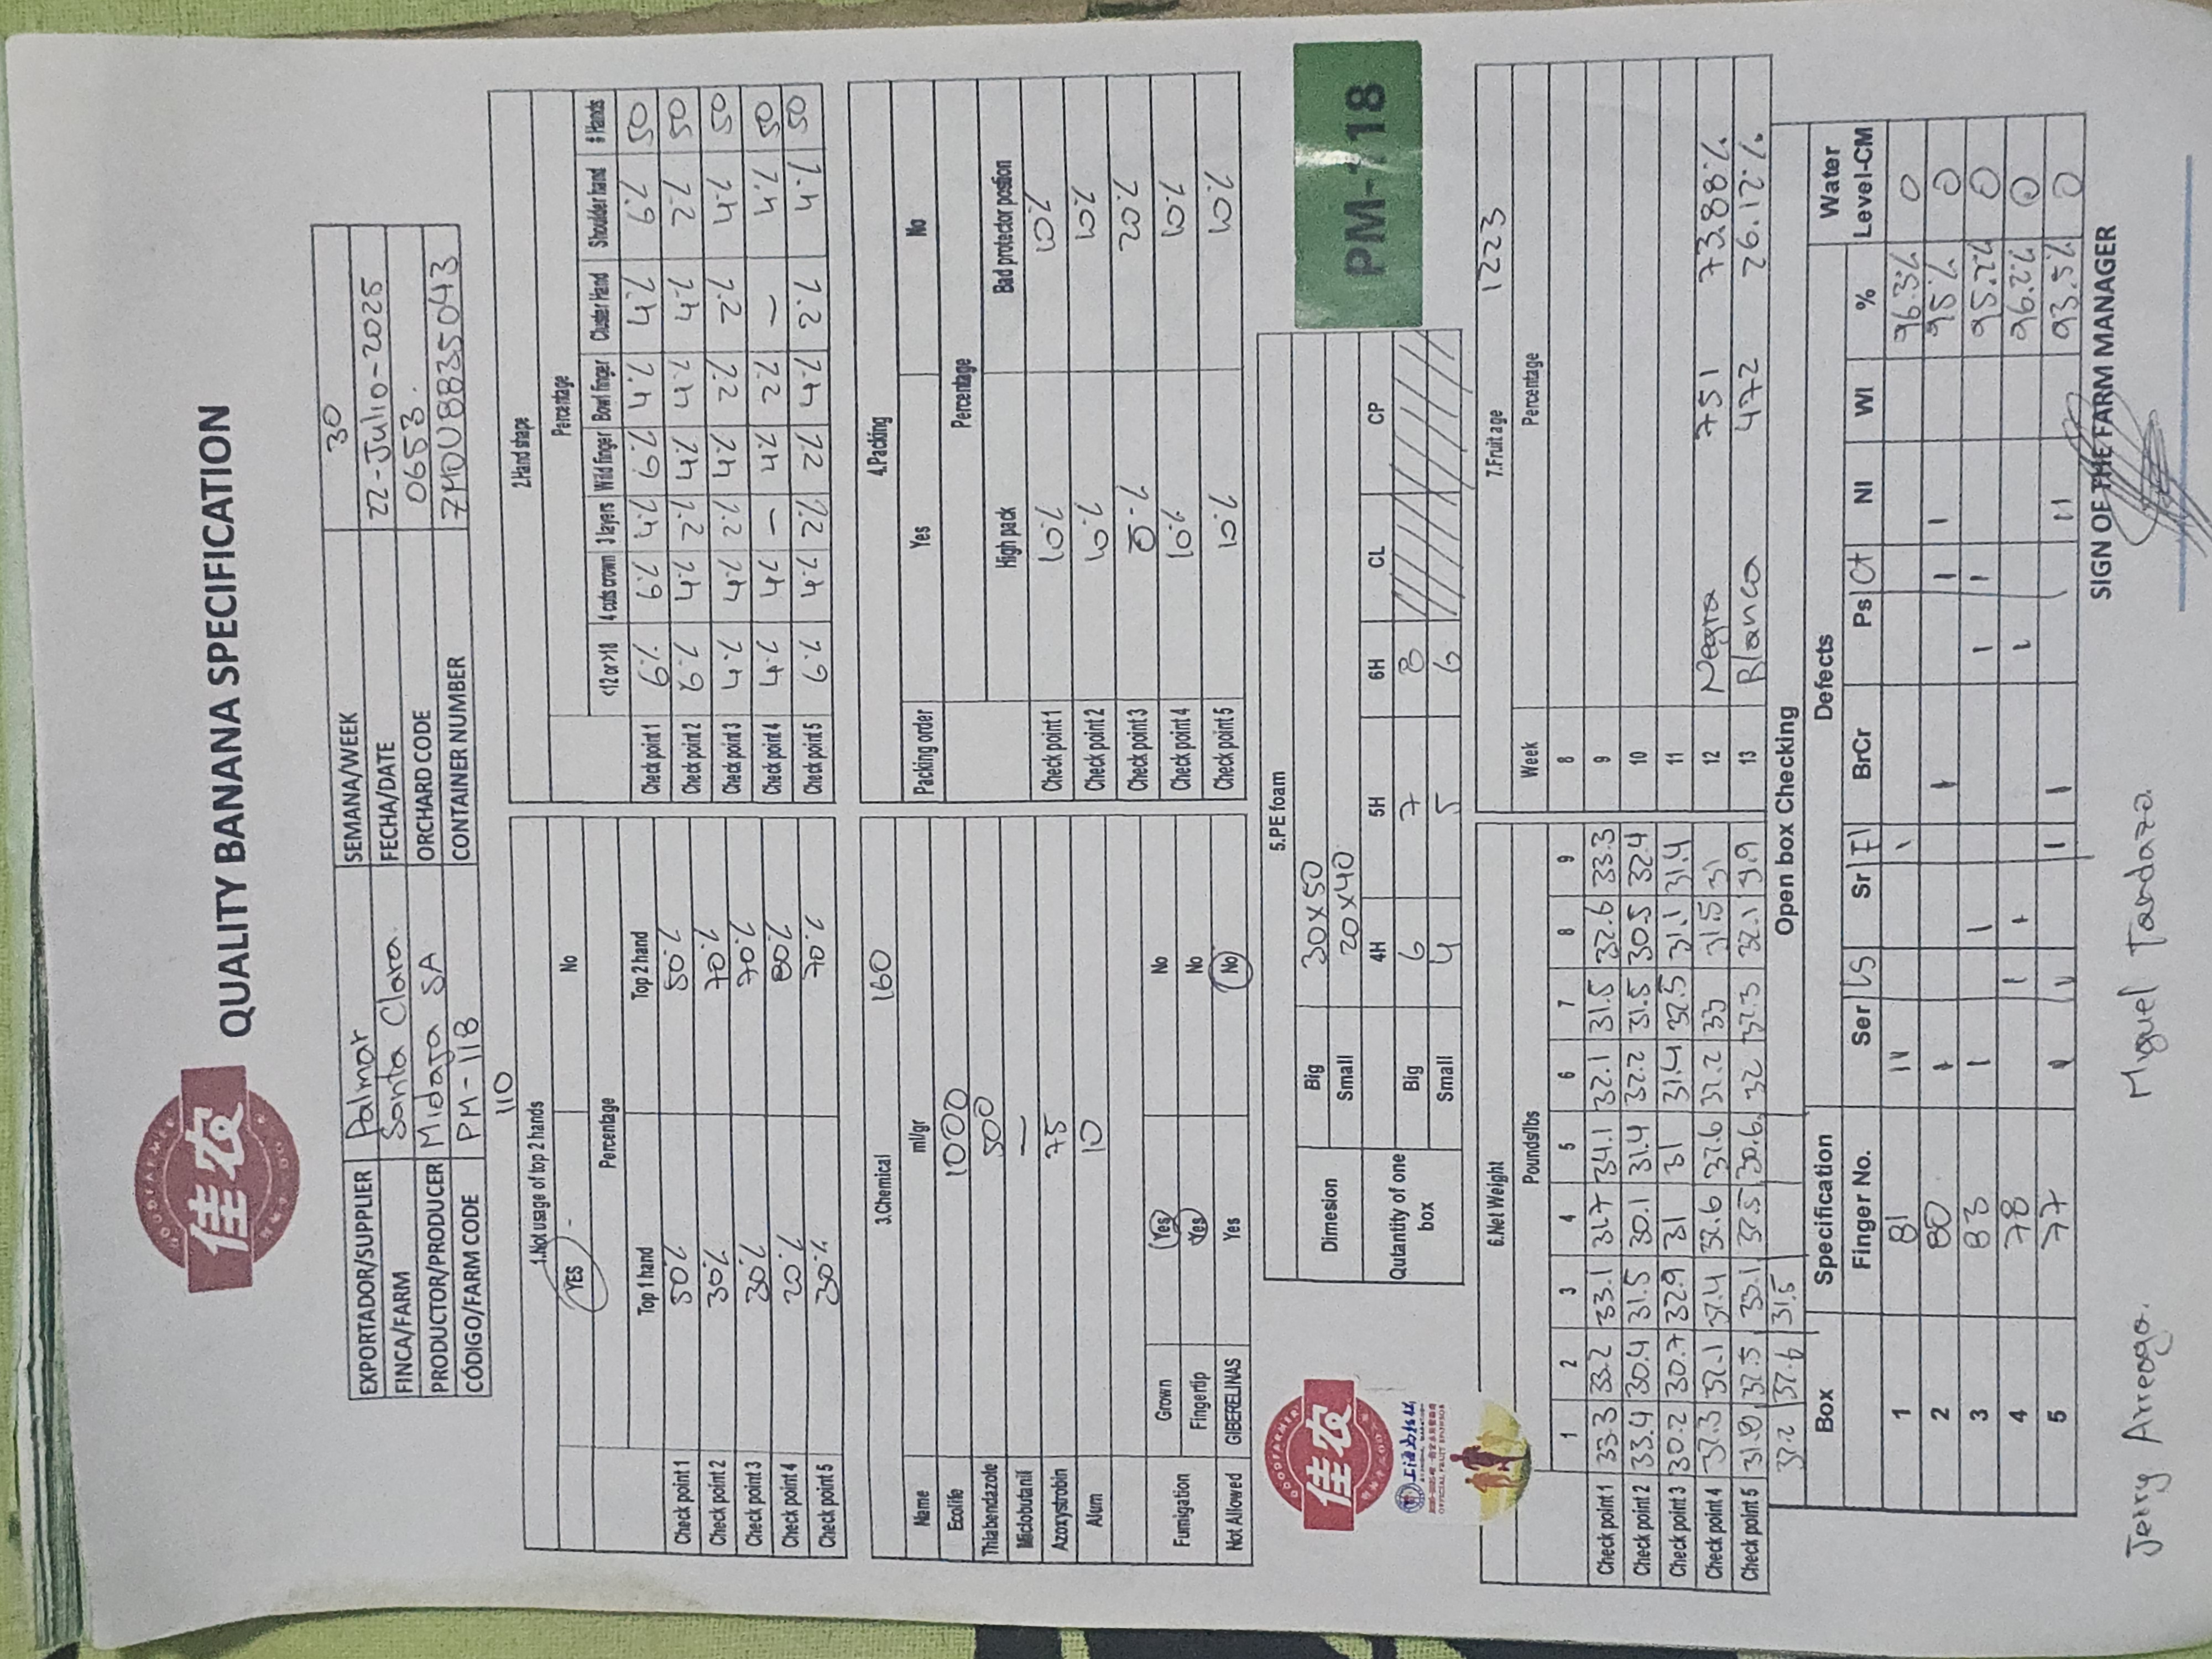 GOODFARMER
佳农
QUALITY BANANA SPECIFICATION
EXPORTADOR/SUPPLIER Palmar SEMANA/WEEK 30
FINCA/FARM Santa Clara. FECHA/DATE 22-Julio-2025
PRODUCTOR/PRODUCER Midasa SA ORCHARD CODE 0653.
CÓDIGO/FARM CODE PM-118 CONTAINER NUMBER ZMOU8835043
110
1.Not usage of top 2 hands
YES - No
Percentage
Top 1 hand Top 2 hand
Check point 1 50% 50%
Check point 2 30% 70%
Check point 3 30% 70%
Check point 4 20% 80%
Check point 5 30% 70%
2.Hand shape
Percentage
<12 or >18 4 cuts crown 3 layers Wild finger Bowl finger Cluster Hand Shoulder hand # Hands
Check point 1 6% 6% 4% 6% 4% 4% 6% 50
Check point 2 6% 4% 2% 4% 4% 4% 2% 50
Check point 3 4% 4% 2% 4% 2% 2% 4% 50
Check point 4 4% 4% — 4% 2% — 4% 50
Check point 5 6% 4% 2% 2% 4% 2% 4% 50
3.Chemical 160
Name ml/gr
Ecolife 1000
Thiabendazole 500
Miclobutanil —
Azoxystrobin 75
Alum 10
Fumigation Grown Yes No
Fingertip Yes No
Not Allowed GIBERELINAS Yes No
4.Packing
Packing order Yes No
Percentage
High pack Bad protector postion
Check point 1 10% 10%
Check point 2 10% 10%
Check point 3 0% 20%
Check point 4 10% 10%
Check point 5 10% 10%
GOODFARMER
佳农
OFFICIAL FRUIT SPONSOR
5.PE foam
Dimesion Big 30x50
Small 20x40
Qutantity of one box 4H 5H 6H CL CP
Big 6 7 8
Small 4 5 6
PM-118
6.Net Weight
Pounds/lbs
1 2 3 4 5 6 7 8 9
Check point 1 33.3 33.2 33.1 31.7 34.1 32.1 31.5 32.6 33.3
Check point 2 33.4 30.4 31.5 30.1 31.4 32.2 31.5 30.5 32.4
Check point 3 30.2 30.7 32.9 31 31 31.4 32.5 31.1 31.4
Check point 4 32.3 32.1 32.4 32.6 32.6 32.2 33 31.5 31
Check point 5 31.8 32.5 33.1 32.5 30.6 32 32.3 32.1 31.9
32.2 32.6 31.5
7.Fruit age 1223
Week Percentage
8
9
10
11
12 Negra 751 73.88%
13 Blanca 472 26.12%
Open box Checking
Box Specification Defects Water
Finger No. Ser LS Sr Fl BrCr Ps Ct NI WI % Level-CM
1 81 III I 96.3% 0
2 80 I I I I 95% 0
3 83 I I I I 95.2% 0
4 78 I I I 96.2% 0
5 77 I I I I II 93.5% 0
SIGN OF THE FARM MANAGER
Jerry Arreaga.
Miguel Tandazo.